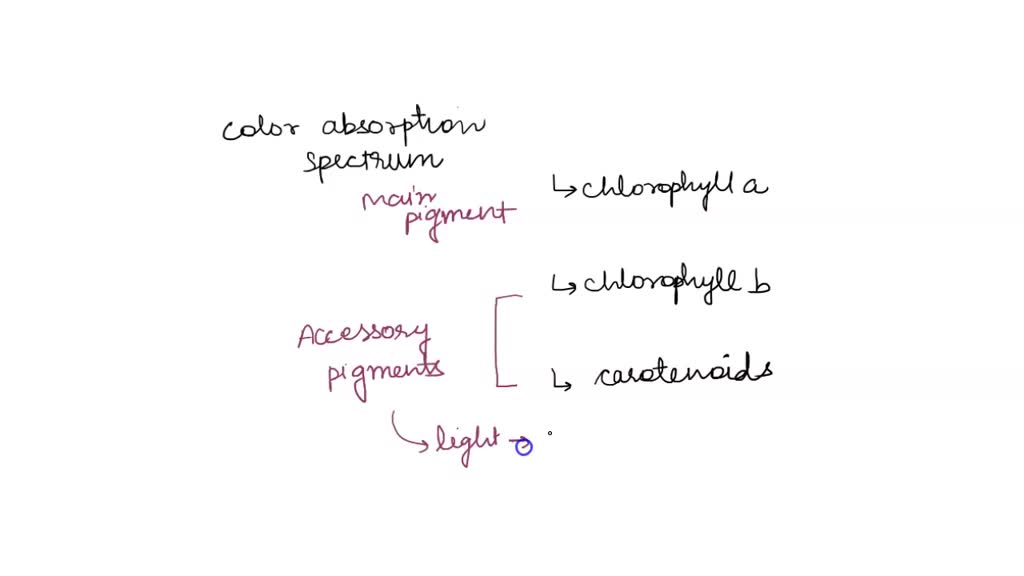 color absorption
spectrum
main
pigment
↳ chlorophyll a
↳ chlorophyll b
Accessory
pigments
↳ carotenoids
↳ light →